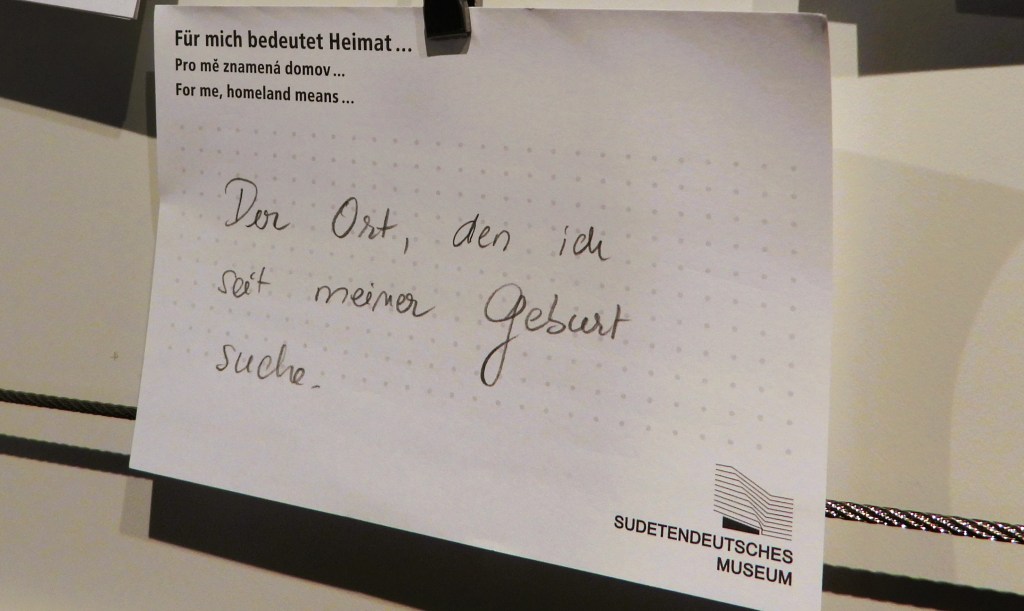 Für mich bedeutet Heimat ...
Pro mě znamená domov ...
For me, homeland means ...
Der Ort, den ich
seit meiner Geburt
suche.
SUDETENDEUTSCHES
MUSEUM